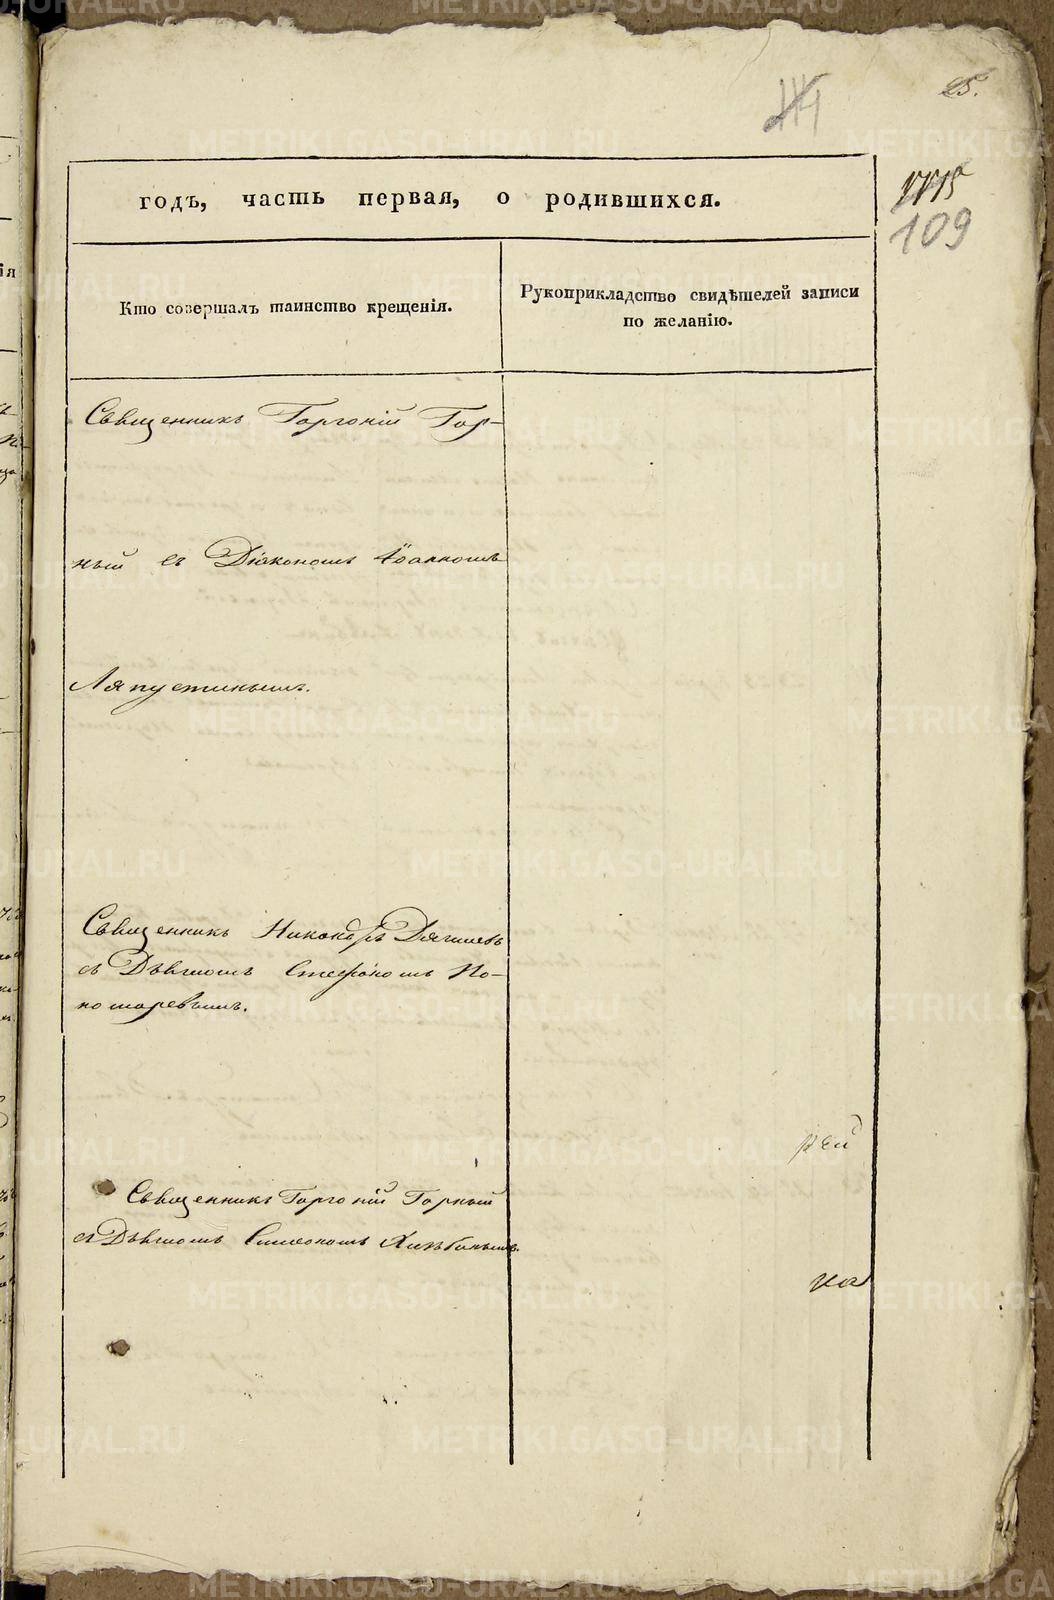 25.
114
1115
109
годъ, часть первая, о родившихся.
Кто совершалъ таинство крещенія.
Рукоприкладство свидѣтелей записи
по желанію.
Священникъ Горгоній Гор-
ный съ Діякономъ Іоанномъ
Ляпустинымъ.
Священникъ Никандръ Дягилевъ
съ Дьячкомъ Стефаномъ По-
номаревымъ.
рей
Священникъ Горгоній Горный
съ Дьячкомъ Симеономъ Хлѣбинымъ.
на
METRIKI.GASO-URAL.RU